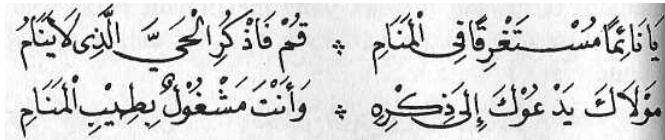 يَا نَائِمًا مُسْتَغْرِقًا فِى الْمَنَامِ ۞ قُمْ فَاذْكُرِ الْحَيَّ الَّذِى لَايَنَامُ
مَوْلَاكَ يَدْعُوْكَ إِلَى ذِكْرِهِ ۞ وَأَنْتَ مَشْغُوْلٌ بِطِيْبِ الْمَنَامِ